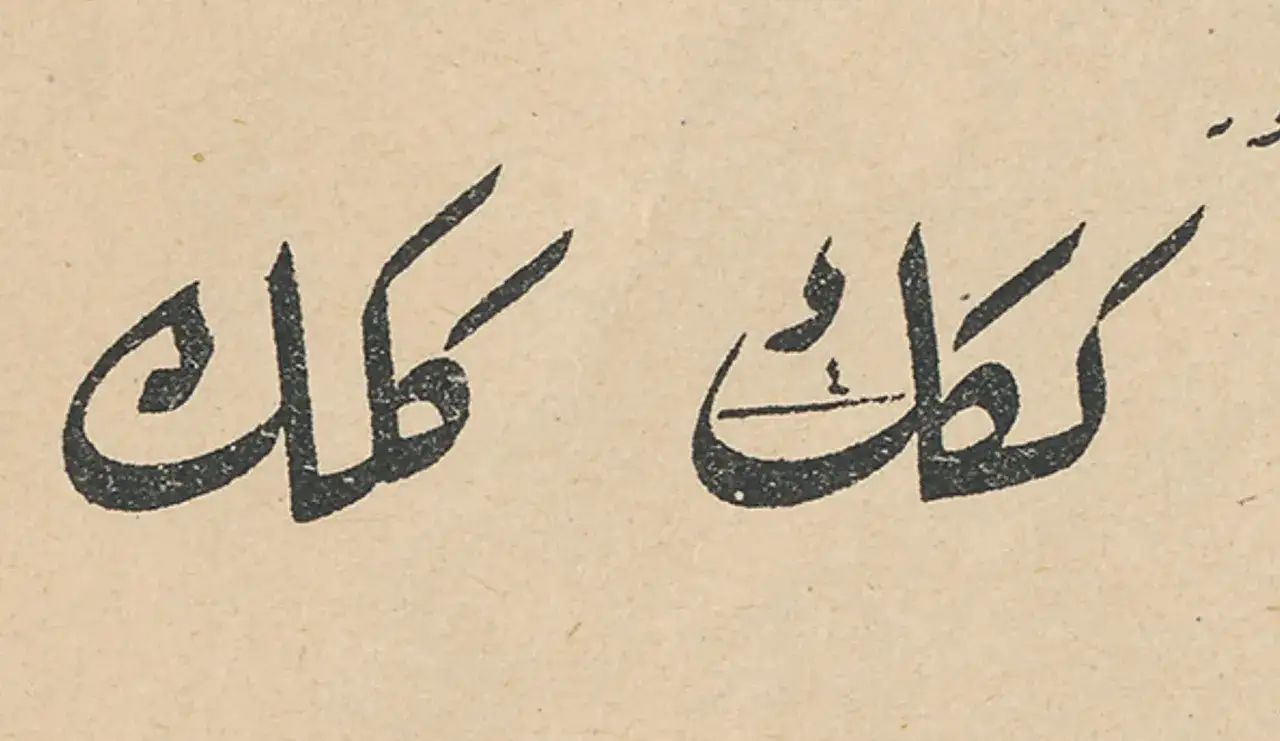 ككك ككك